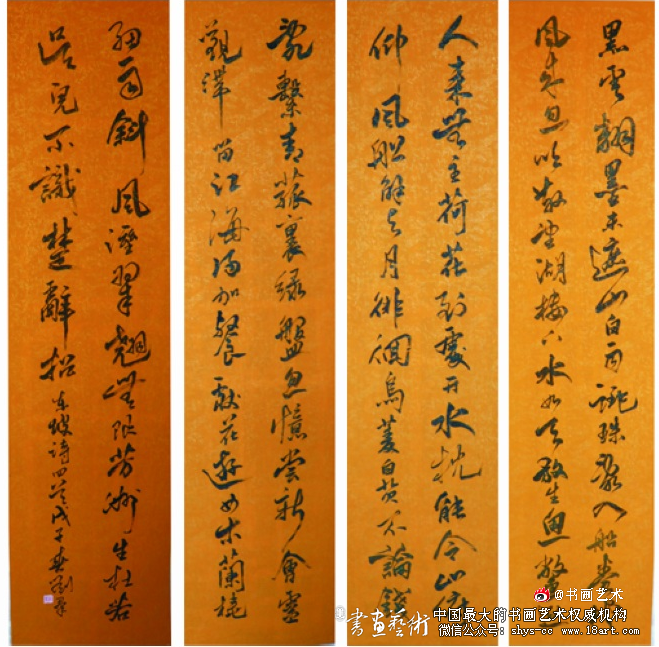 黑雲翻墨未遮山白雨跳珠亂入船卷地
風來忽吹散望湖樓下水如天放生魚鱉逐
人來無主荷花到處開水枕能令山俯
仰風船解與月徘徊烏菱白芡不論錢
亂繫青菰裹綠盤忽憶嘗新會靈
觀滯留江海得加餐獻花遊女木蘭橈
細雨斜風濕翠翹無限芳洲生杜若
吳兒不識楚辭招
东坡詩四首戊子春劉
@书画艺术
書畫藝術
中国最大的书画艺术权威机构
微信公众号：shys-cc www.18art.com